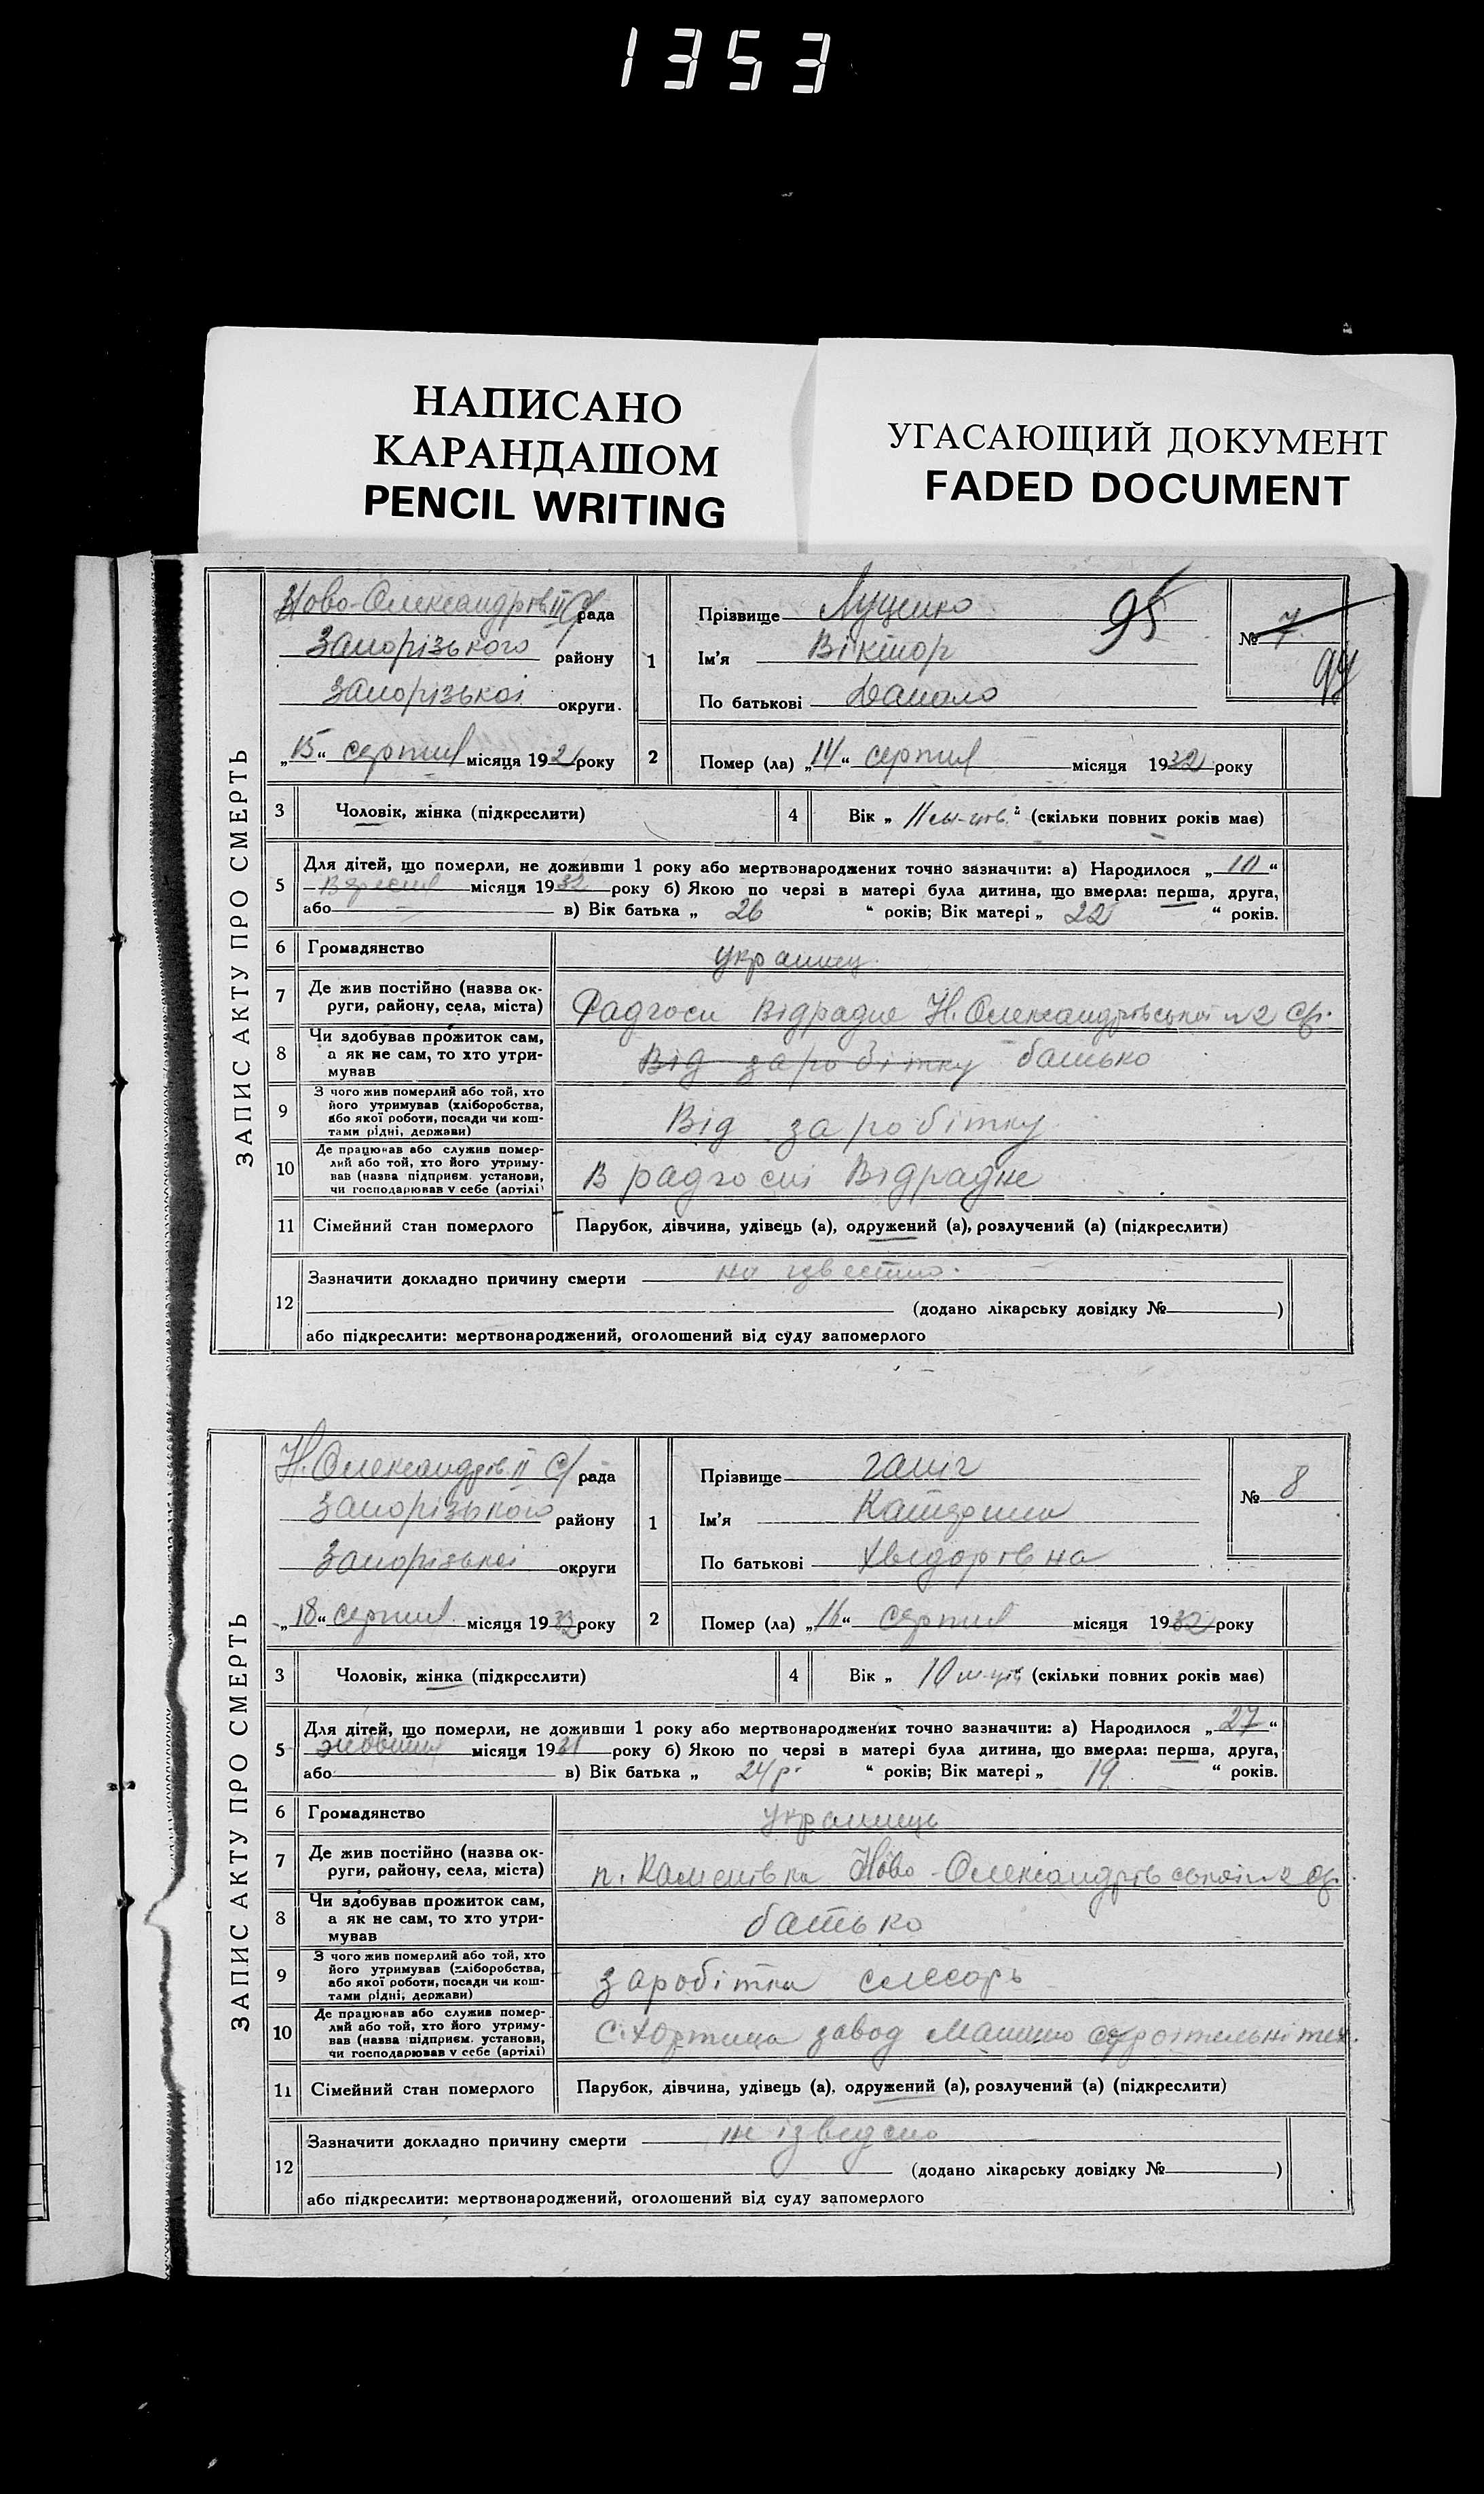 1353
НАПИСАНО
КАРАНДАШОМ
PENCIL WRITING
УГАСАЮЩИЙ ДОКУМЕНТ
FADED DOCUMENT
ЗАПИС АКТУ ПРО СМЕРТЬ
Ново-Олександрів. II С/рада
Запорізького району
Запорізької округи.
„15“ серпня місяця 192 року
1
Прізвище Луценко
Ім'я Віктор
По батькові Данало
95
№ 7
94
2 Помер (ла) „14“ серпня місяця 1932 року
3 Чоловік, жінка (підкреслити)
4 Вік „11 м-ців“ (скільки повних років має)
5 Для дітей, що померли, не доживши 1 року або мертвонароджених точно зазначити: а) Народилося „10“
Вересня місяця 1932 року б) Якою по черзі в матері була дитина, що вмерла: перша, друга,
або в) Вік батька „ 26 “ років; Вік матері „ 22 “ років.
6 Громадянство украинец
7 Де жив постійно (назва округи, району, села, міста) Радгосп Відрадне Н. Олександрівської №2 с/р.
8 Чи здобував прожиток сам, а як не сам, то хто утримував Від заробітку батько
9 З чого жив померлий або той, хто його утримував (хліборобства, або якої роботи, посади чи коштами рідні, держави) Від заробітку
10 Де працював або служив померлий або той, хто його утримував (назва підприєм. установи, чи господарював у себе (артілі) В радгоспі Відрадне
11 Сімейний стан померлого Парубок, дівчина, удівець (а), одружений (а), розлучений (а) (підкреслити)
12 Зазначити докладно причину смерти не ізвестно.
(додано лікарську довідку № )
або підкреслити: мертвонароджений, оголошений від суду запомерлого
ЗАПИС АКТУ ПРО СМЕРТЬ
Н. Олександрів. II С/рада
Запорізького району
Запорізької округи
„18“ серпня місяця 1932 року
1
Прізвище
Ім'я Катерина
По батькові Хвидорівна
№ 8
2 Помер (ла) „16“ серпня місяця 1932 року
3 Чоловік, жінка (підкреслити)
4 Вік „ 10 м-ців (скільки повних років має)
5 Для дітей, що померли, не доживши 1 року або мертвонароджених точно зазначити: а) Народилося „27“
жовтня місяця 1931 року б) Якою по черзі в матері була дитина, що вмерла: перша, друга,
або в) Вік батька „ 24 р. “ років; Вік матері „ 19 “ років.
6 Громадянство украинець
7 Де жив постійно (назва округи, району, села, міста) п. Каменівка Ново-Олександрівської №2 с/р.
8 Чи здобував прожиток сам, а як не сам, то хто утримував батько
9 З чого жив померлий або той, хто його утримував (хліборобства, або якої роботи, посади чи коштами рідні, держави) заробітка слесорь
10 Де працював або служив померлий або той, хто його утримував (назва підприєм. установи, чи господарював у себе (артілі) С. Хортица завод Машино
11 Сімейний стан померлого Парубок, дівчина, удівець (а), одружений (а), розлучений (а) (підкреслити)
12 Зазначити докладно причину смерти не ізвєдено
(додано лікарську довідку № )
або підкреслити: мертвонароджений, оголошений від суду запомерлого